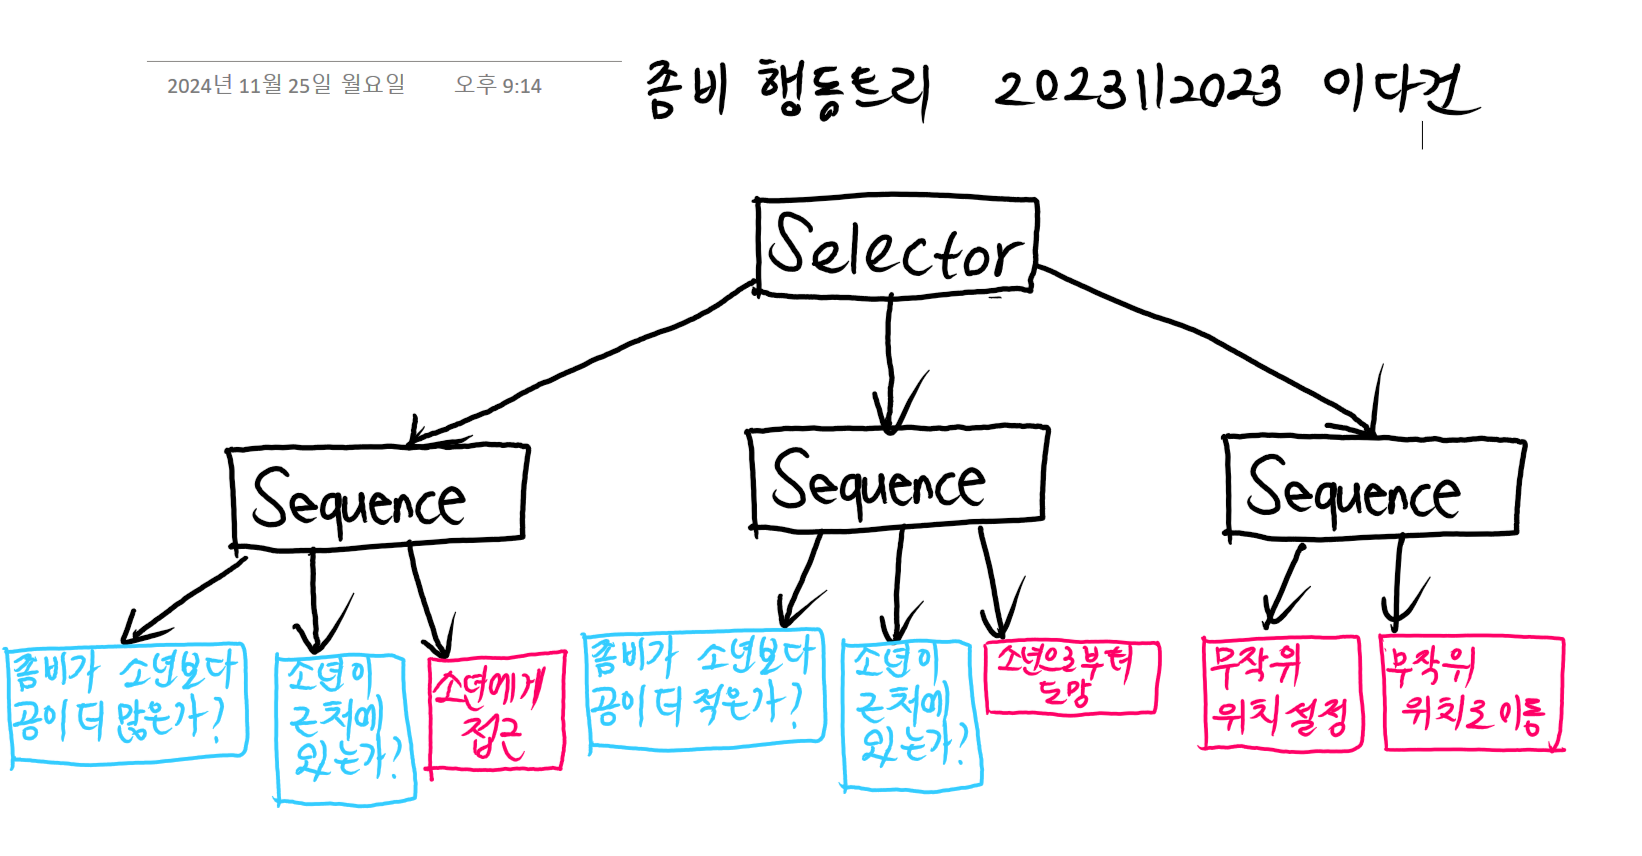 2024년 11월 25일 월요일 오후 9:14
좀비 행동트리 2023112023 이다건
Selector
Sequence
Sequence
Sequence
좀비가 소년보다
공이 더 많은가?
소년이
근처에
있는가?
소년에게
접근
좀비가 소년보다
공이 더 적은가?
소년이
근처에
있는가?
소년으로부터
도망
무작위
위치 설정
무작위
위치로 이동